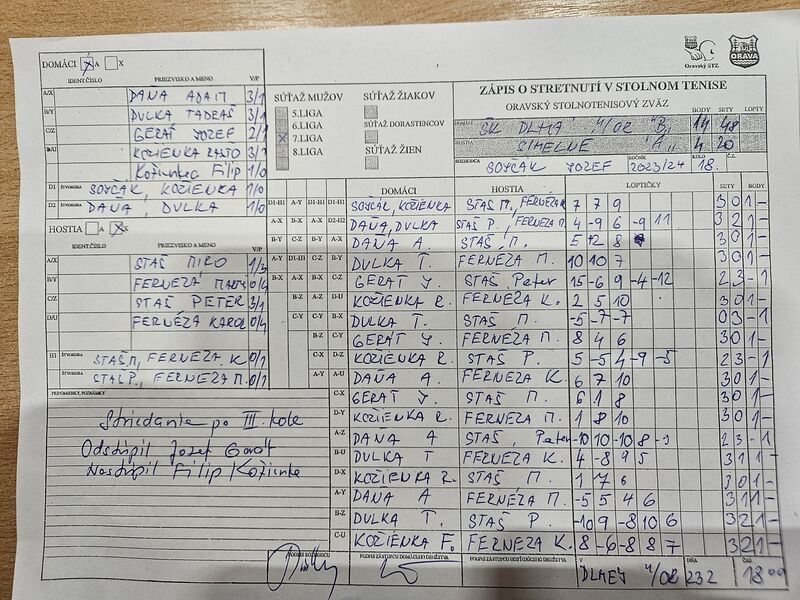 DOMÁCI A X
IDENT.ČÍSLO PRIEZVISKO A MENO V/P
A/X DAŇA ADAM 3/1
B/Y DULKA TADEÁŠ 3/1
C/Z GERÁT JOZEF 2/1
D/U KOŽIENKA RASŤO 3/1
Kožienka Filip 1/0
D1 štvorhra SOJČÁK, KOŽIENKA 1/0
D2 štvorhra DAŇA, DULKA 1/0
HOSTIA A X
IDENT.ČÍSLO PRIEZVISKO A MENO V/P
A/X STAŠ MIRO 1/3
B/Y FERNÉZA 0/4
C/Z STAŠ PETER 3/1
D/U FERNÉZA KAROL 0/4
H1 štvorhra STAŠ M, FERNÉZA K. 0/1
štvorhra STAŠ P., FERNÉZA M. 0/1
PRIPOMIENKY, POZNÁMKY
Striedanie po III. kole
Odstúpil Jozef Gerát
Nastúpil Filip Kožienka
SÚŤAŽ MUŽOV
5.LIGA
6.LIGA
7.LIGA
8.LIGA
SÚŤAŽ ŽIAKOV
SÚŤAŽ DORASTENCOV
SÚŤAŽ ŽIEN
Oravský STZ
ORAVA
ZÁPIS O STRETNUTÍ V STOLNOM TENISE
ORAVSKÝ STOLNOTENISOVÝ ZVÄZ BODY SETY LOPTY
DOMÁCI ŠK DLHÁ N/OR "B" 14 48
HOSTIA SIHELNÉ "A" 4 20
ROZHODCA SOJČÁK JOZEF ROČNÍK 2023/24 KOLO 18. Č.L.
DOMÁCI HOSTIA LOPTIČKY SETY BODY
D1-H1 A-Y D1-H1 D1-H1 SOJČÁK, KOŽIENKA STAŠ M, FERNÉZA K. 7 7 9 3 0 1 -
A-X B-X A-X D2-H2 DAŇA, DULKA STAŠ P., FERNÉZA M. 4 -9 6 -9 11 3 2 1 -
B-Y C-Z B-Y A-X DAŇA A. STAŠ M. 5 12 8 3 0 1 -
C-Z D1-H1 C-Z B-Y DULKA T. FERNÉZA M. 10 10 7 3 0 1 -
B-X A-X B-X C-Z GERÁT J. STAŠ Peter 15 -6 9 -4 -12 2 3 - 1
B-Z A-Z D-U KOŽIENKA R. FERNÉZA K. 2 5 10 3 0 1 -
C-Y C-Y B-X DULKA T. STAŠ M -5 -7 -7 0 3 - 1
B-Z C-Y GERÁT J. FERNÉZA M. 8 4 6 3 0 1 -
C-X D-Z KOŽIENKA R. STAŠ P. 5 -5 4 -9 -5 2 3 - 1
A-Y A-U DAŇA A. FERNÉZA K. 6 7 10 3 0 1 -
C-X GERÁT J. STAŠ M 6 1 8 3 0 1 -
D-Y KOŽIENKA R. FERNÉZA M. 1 8 10 3 0 1 -
A-Z DAŇA A STAŠ, Peter -10 10 -10 8 2 3 - 1
B-U DULKA T FERNÉZA K. 4 -8 9 5 3 1 1 -
D-X KOŽIENKA R. STAŠ M. 1 7 6 3 0 1 -
A-Y DAŇA A FERNÉZA M. -5 5 4 6 3 1 1 -
B-Z DULKA T. STAŠ P. -10 9 -8 10 6 3 2 1 -
C-U KOŽIENKA F. FERNÉZA K. 8 -6 -8 8 7 3 2 1 -
PODPIS ROZHODCU PODPIS ZÁSTUPCU DOMÁCEHO DRUŽSTVA PODPIS ZÁSTUPCU HOSŤUJÚCEHO DRUŽSTVA V DLHEJ N/OR DŇA ČAS 18 00